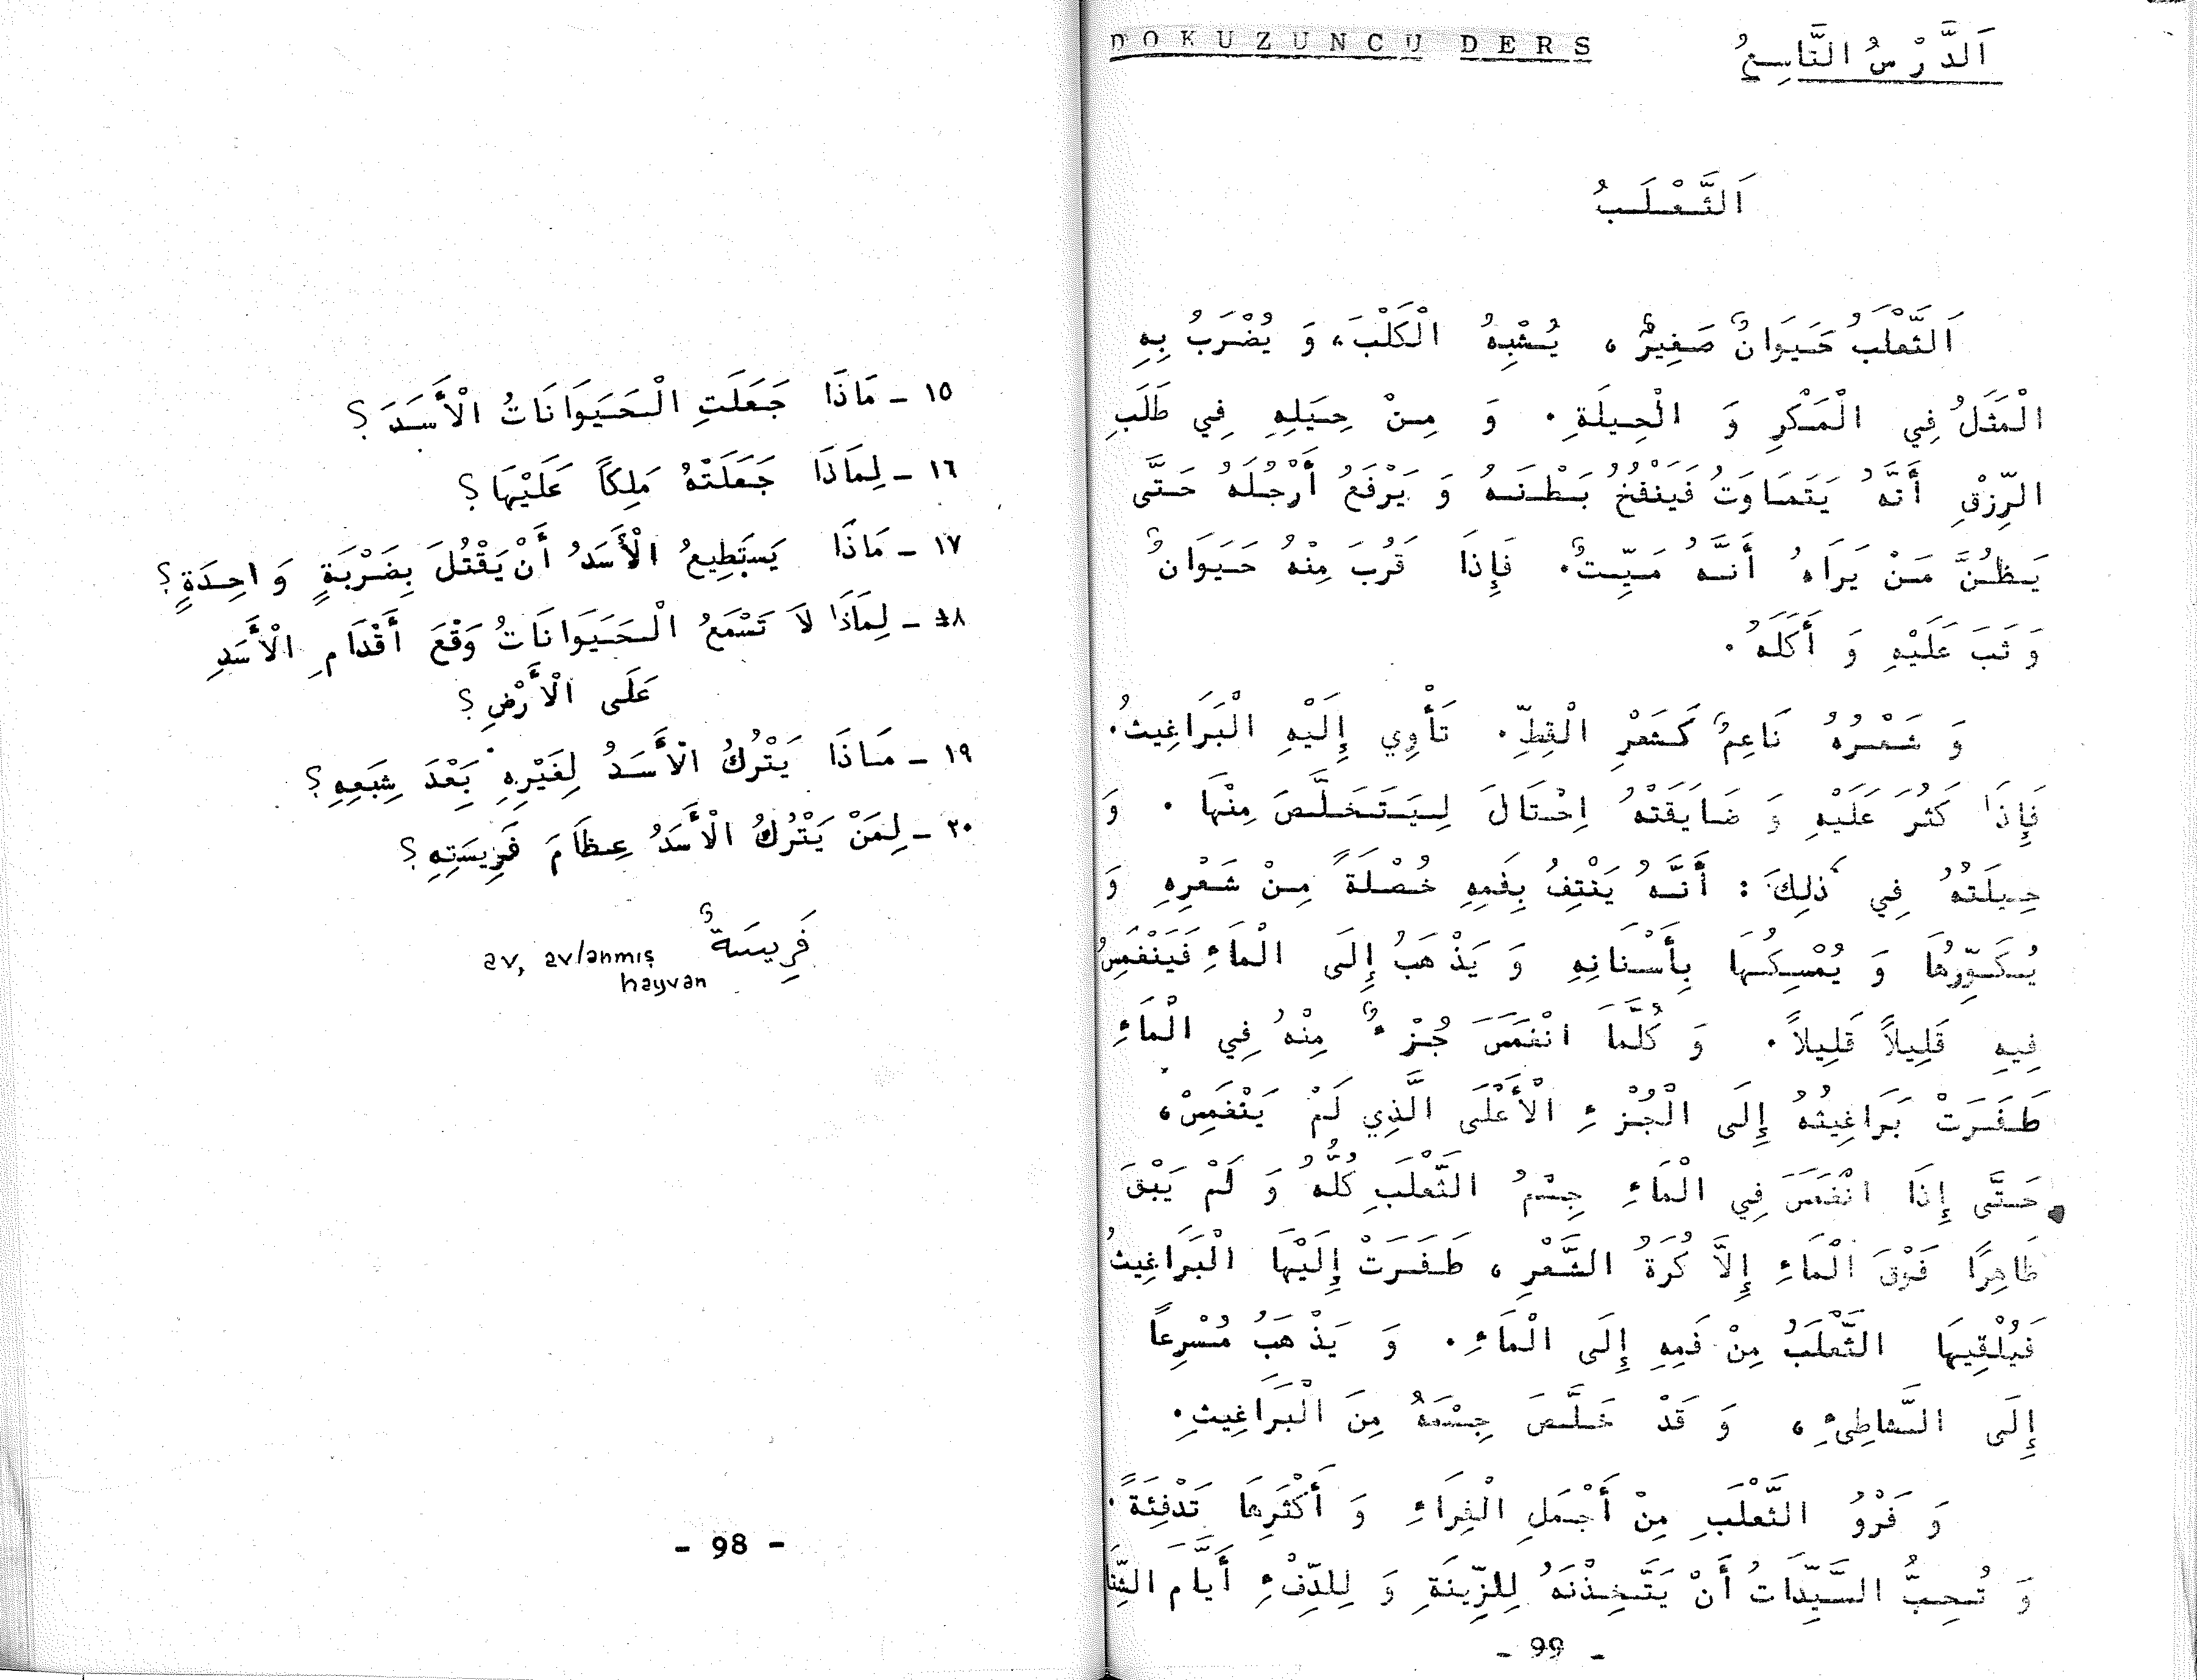 ١٥ ـ مَاذَا جَعَلَتِ الْحَيَوَانَاتُ الْأَسَدَ ؟
١٦ ـ لِمَاذَا جَعَلَتْهُ مَلِكاً عَلَيْهَا ؟
١٧ ـ مَاذَا يَسْتَطِيعُ الْأَسَدُ أَنْ يَقْتُلَ بِضَرْبَةٍ وَاحِدَةٍ ؟
١٨ ـ لِمَاذَا لَا تَسْمَعُ الْحَيَوَانَاتُ وَقْعَ أَقْدَامِ الْأَسَدِ
عَلَى الْأَرْضِ ؟
١٩ ـ مَاذَا يَتْرُكُ الْأَسَدُ لِغَيْرِهِ بَعْدَ شِبَعِهِ ؟
٢٠ ـ لِمَنْ يَتْرُكُ الْأَسَدُ عِظَامَ فَرِيسَتِهِ ؟
فَرِيسَةٌ av, avlanmış
hayvan
- 98 -
DOKUZUNCU DERS اَلدَّرْسُ التَّاسِعُ
اَلثَّعْلَبُ
اَلثَّعْلَبُ حَيَوَانٌ صَغِيرٌ ، يُشْبِهُ الْكَلْبَ، وَ يُضْرَبُ بِهِ
الْمَثَلُ فِي الْمَكْرِ وَ الْحِيلَةِ . وَ مِنْ حِيَلِهِ فِي طَلَبِ
الرِّزْقِ أَنَّهُ يَتَمَاوَتُ فَيَنْفُخُ بَطْنَهُ وَ يَرْفَعُ أَرْجُلَهُ حَتَّى
يَظُنَّ مَنْ يَرَاهُ أَنَّهُ مَيِّتٌ. فَإِذَا قَرُبَ مِنْهُ حَيَوَانٌ
وَثَبَ عَلَيْهِ وَ أَكَلَهُ .
وَ شَعْرُهُ نَاعِمٌ كَشَعْرِ الْقِطِّ. تَأْوِي إِلَيْهِ الْبَرَاغِيثُ.
فَإِذَا كَثُرَ عَلَيْهِ وَ ضَايَقَتْهُ اِحْتَالَ لِيَتَخَلَّصَ مِنْهَا . وَ
حِيلَتُهُ فِي ذٰلِكَ : أَنَّهُ يَنْتِفُ بِفَمِهِ خُصْلَةً مِنْ شَعْرِهِ وَ
يُكَوِّرُهَا وَ يُمْسِكُهَا بِأَسْنَانِهِ وَ يَذْهَبُ إِلَى الْمَاءِ فَيَنْغَمِسُ
فِيهِ قَلِيلاً قَلِيلاً. وَ كُلَّمَا انْغَمَسَ جُزْءٌ مِنْهُ فِي الْمَاءِ
طَفَرَتْ بَرَاغِيثُهُ إِلَى الْجُزْءِ الْأَعْلَى الَّذِي لَمْ يَنْغَمِسْ،
حَتَّى إِذَا انْغَمَسَ فِي الْمَاءِ جِسْمُ الثَّعْلَبِ كُلُّهُ وَ لَمْ يَبْقَ
ظَاهِرًا فَوْقَ الْمَاءِ إِلَّا كُرَةُ الشَّعْرِ ، طَفَرَتْ إِلَيْهَا الْبَرَاغِيثُ
فَيُلْقِيهَا الثَّعْلَبُ مِنْ فَمِهِ إِلَى الْمَاءِ. وَ يَذْهَبُ مُسْرِعاً
إِلَى الشَّاطِىءِ، وَ قَدْ خَلَّصَ جِسْمَهُ مِنَ الْبَرَاغِيثِ.
وَ فَرْوُ الثَّعْلَبِ مِنْ أَجْمَلِ الْفِرَاءِ وَ أَكْثَرِهَا تَدْفِئَةً.
وَ تُحِبُّ السَّيِّدَاتُ أَنْ يَتَّخِذْنَهُ لِلزِّينَةِ وَ لِلدِّفْءِ أَيَّامَ
- 99 -